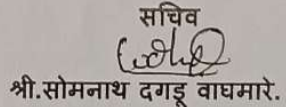 सचिव
श्री.सोमनाथ दगडू वाघमारे.